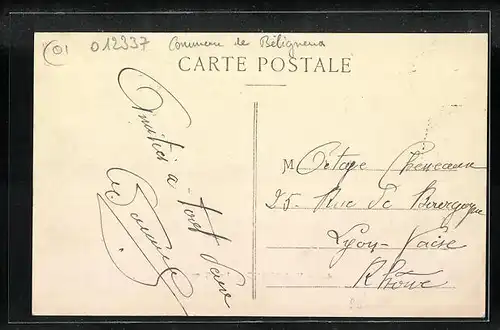 01 012337 Commune de Béligneux
CARTE POSTALE
Amitiés à tous
M Octave Cheneceau
25 Rue de Bourgogne
Lyon-Vaise
Rhône